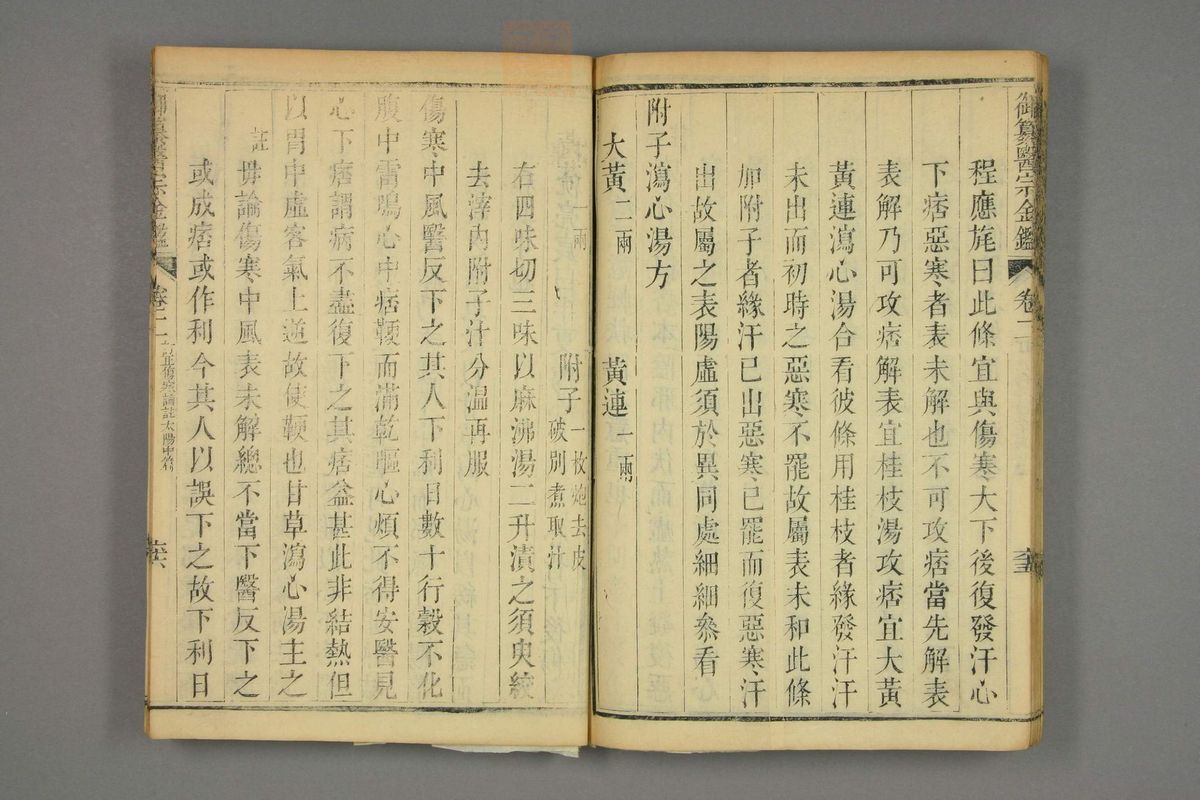 御纂醫宗金鑑 卷二
程應旄曰此條宜與傷寒大下後復發汗心
下痞惡寒者表未解也不可攻痞當先解表
表解乃可攻痞解表宜桂枝湯攻痞宜大黃
黃連瀉心湯合看彼條用桂枝者緣發汗汗
未出而初時之惡寒不罷故屬表未和此條
加附子者緣汗已出惡寒已罷而復惡寒汗
出故屬之表陽虛須於異同處細細叅看
附子瀉心湯方
大黃二兩 黃連一兩
附子一枚炮去皮破別煮取汁
右四味切三味以麻沸湯二升漬之須臾絞
去滓內附子汁分溫再服
傷寒中風醫反下之其人下利日數十行穀不化
腹中雷鳴心中痞鞕而滿乾嘔心煩不得安醫見
心下痞謂病不盡復下之其痞益甚此非結熱但
以胃中虛客氣上逆故使鞕也甘草瀉心湯主之
註 毋論傷寒中風表未解總不當下醫反下之
或成痞或作利今其人以誤下之故下利日
御纂醫宗金鑑 卷二